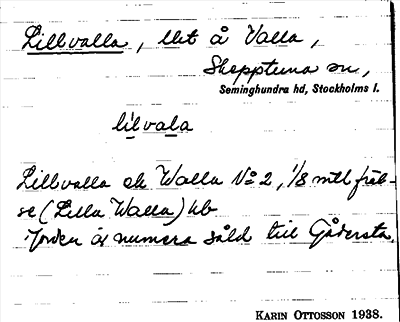 Lillvalla, lht å Valla,
Skepptuna sn,
Seminghundra hd, Stockholms l.
lilvala
Lillvalla el. Walla No 2, 1/8 mtl fräl-
se (Lilla Walla) kb
Jorden är numera såld till Gådersta.
KARIN OTTOSSON 1938.